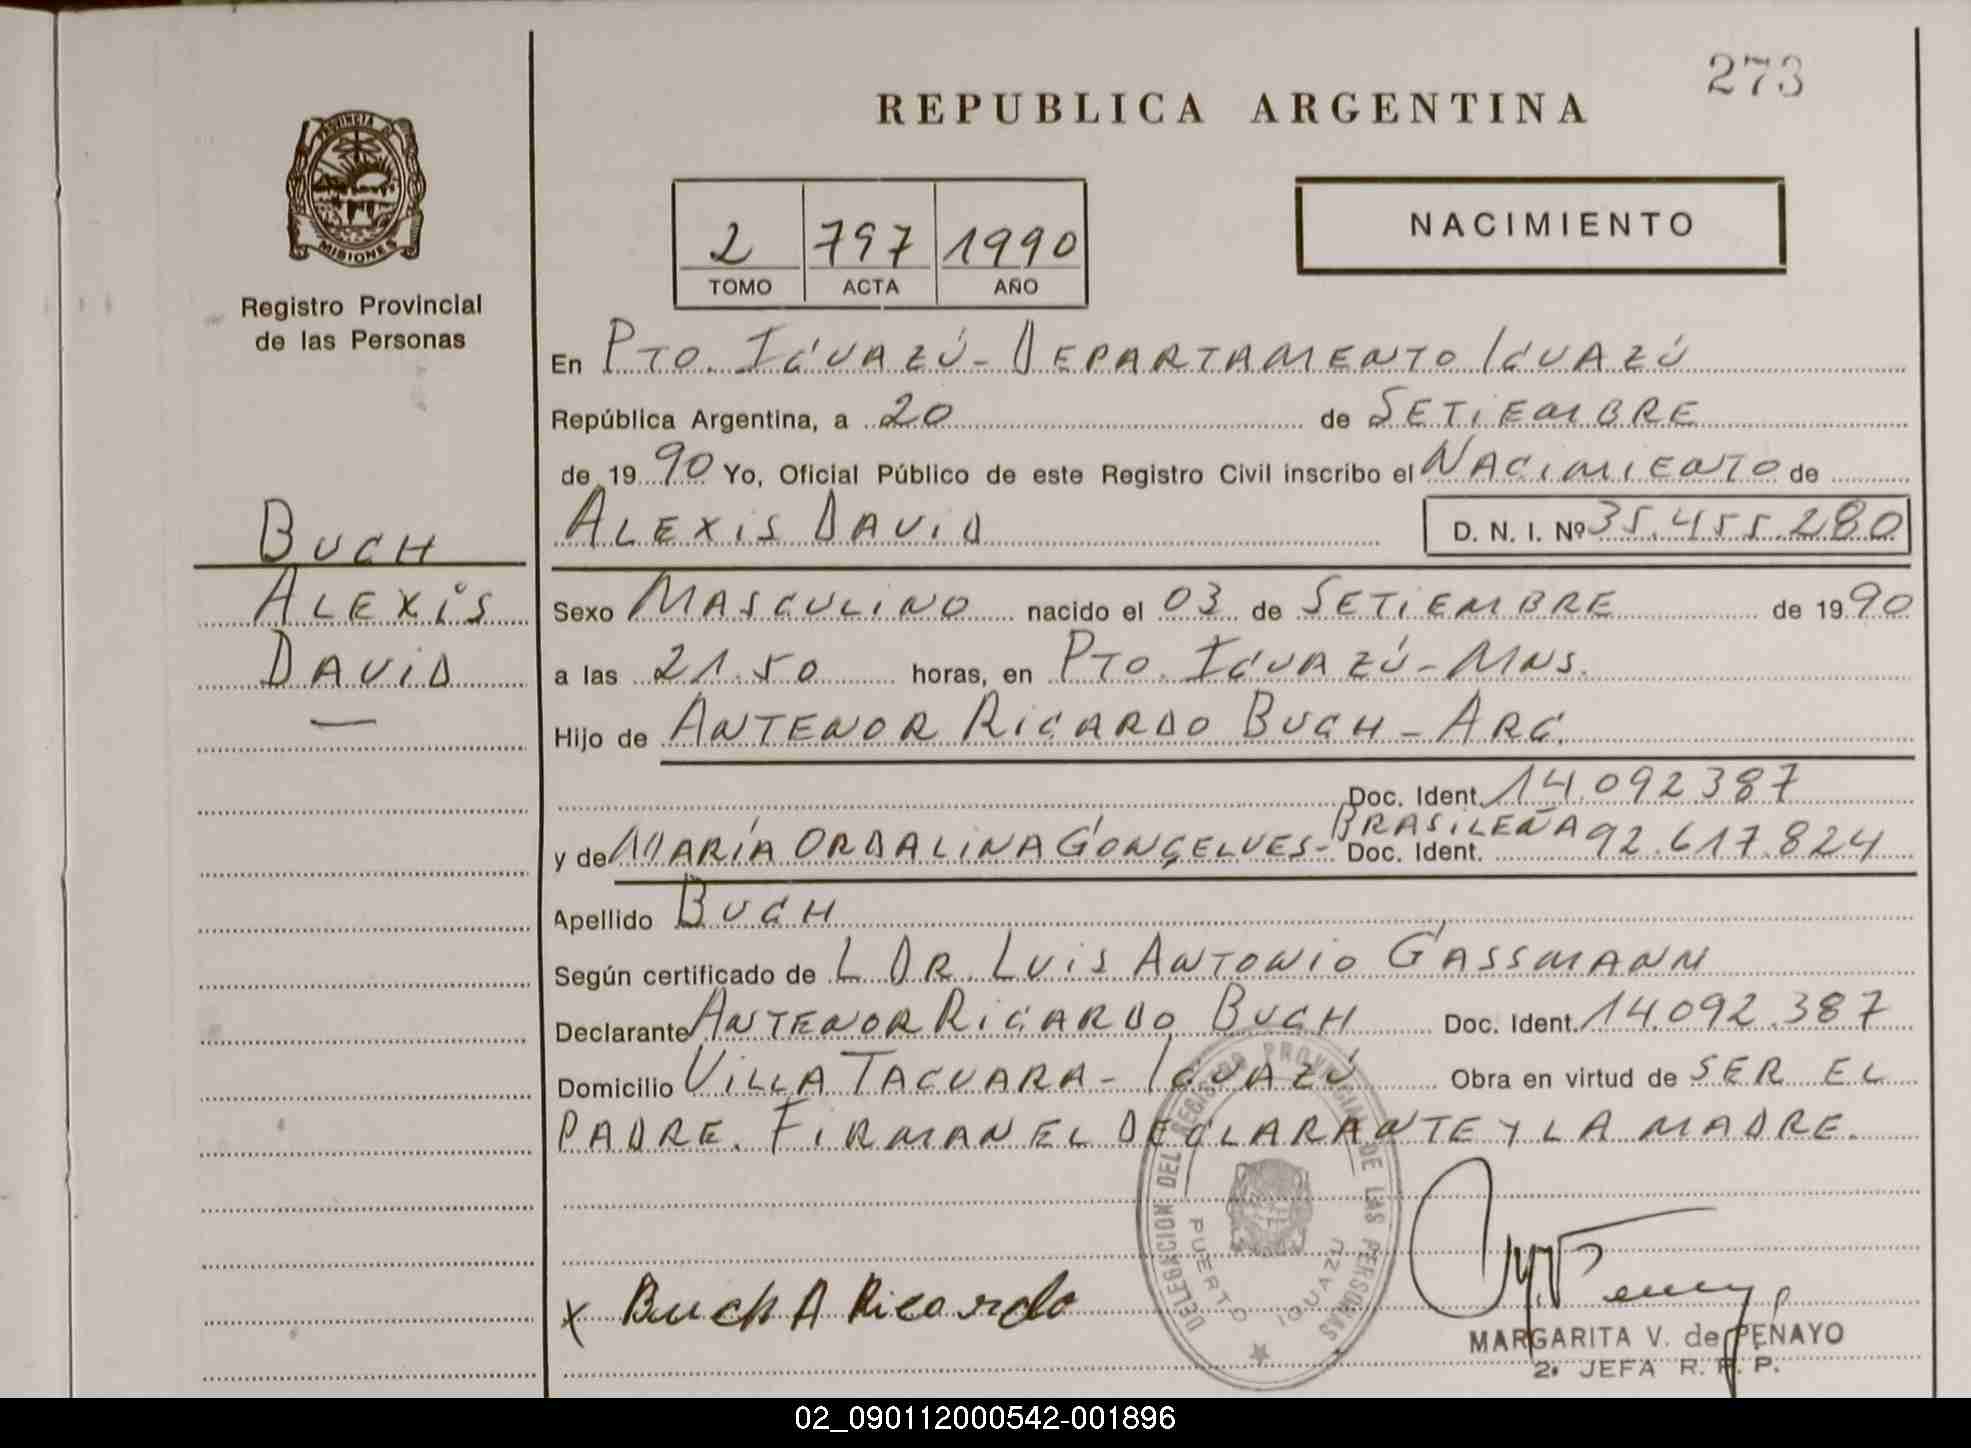 273
REPUBLICA ARGENTINA
PROVINCIA DE
MISIONES
Registro Provincial
de las Personas
2 797 1990
TOMO ACTA AÑO
NACIMIENTO
En PTO. IGUAZÚ - DEPARTAMENTO IGUAZÚ
República Argentina, a 20 de SETIEMBRE
de 19 90 Yo, Oficial Público de este Registro Civil inscribo el NACIMIENTO de
BUCH
ALEXIS DAVID D. N. I. Nº 35.455.280
ALEXIS
Sexo MASCULINO nacido el 03 de SETIEMBRE de 19 90
DAVID
a las 21.50 horas, en PTO. IGUAZÚ - MNS.
Hijo de ANTENOR RICARDO BUCH - ARG.
Doc. Ident. 14.092.387
BRASILEÑA
y de MARÍA ORDALINA GONÇELVES - Doc. Ident. 92.617.824
Apellido BUCH
Según certificado de L DR. LUIS ANTONIO GASSMANN
Declarante ANTENOR RICARDO BUCH Doc. Ident. 14.092.387
Domicilio VILLA TACUARA - IGUAZÚ Obra en virtud de SER EL
PADRE. FIRMAN EL DECLARANTE Y LA MADRE.
DELEGACION DEL REGISTRO PROVINCIAL DE LAS PERSONAS
PUERTO IGUAZU
x Buch A Ricardo
MARGARITA V. de PENAYO
2ª JEFA R. P. P.
02_090112000542-001896